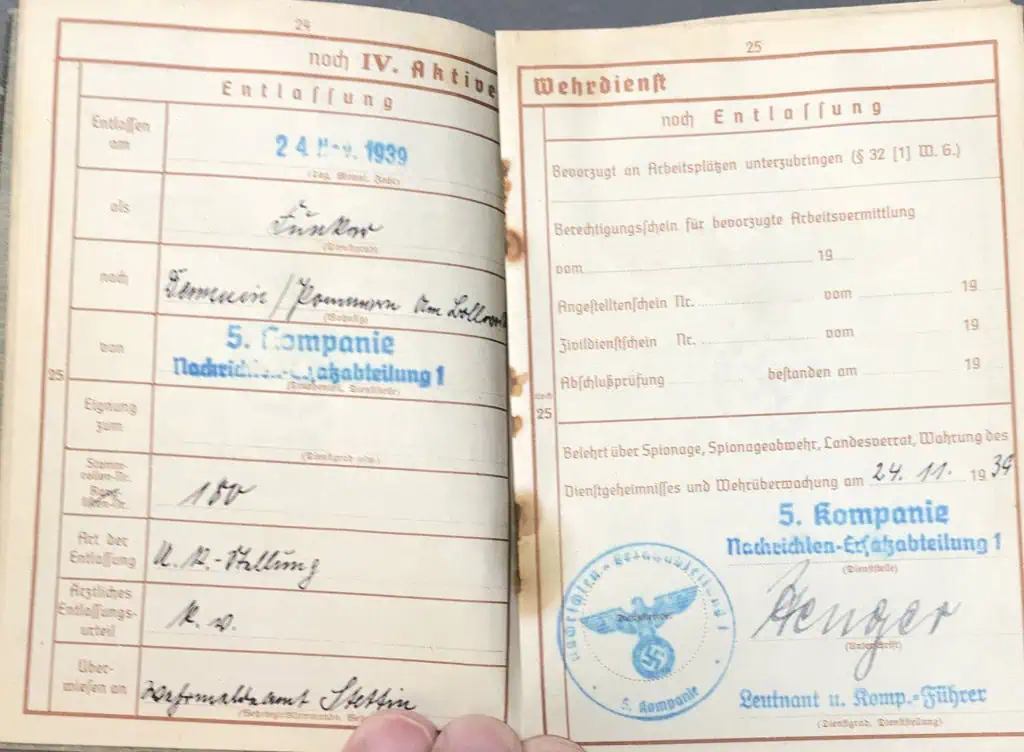 24
noch IV. Aktive
Entlassung
Entlassen am
24. Nov. 1939
(Tag, Monat, Jahr)
als
Funker
(Dienstgrad)
nach
Demmin / Pommern Am Bollwerk
(Wohnsitz)
von
5. Kompanie
Nachrichten-Ersatzabteilung 1
(Truppenteil, Dienststelle)
25
Eignung zum
(Dienstgrad usw.)
Stamm-
rollen-Nr.
180
Art der
Entlassung
U. K.-Stellung
Ärztliches
Entlassungs-
urteil
K. v.
Über-
wiesen an
Wehrmeldeamt Stettin
25
Wehrdienst
noch Entlassung
Bevorzugt an Arbeitsplätzen unterzubringen (§ 32 [1] W. G.)
Berechtigungsschein für bevorzugte Arbeitsvermittlung
vom 19
Angestelltenschein Nr. vom 19
Zivildienstschein Nr. vom 19
Abschlußprüfung bestanden am 19
noch
25
Belehrt über Spionage, Spionageabwehr, Landesverrat, Wahrung des
Dienstgeheimnisses und Wehrüberwachung am 24. 11. 1939
5. Kompanie
Nachrichten-Ersatzabteilung 1
(Dienststelle)
Nachrichten-Ersatzabteilung 1
5. Kompanie
(Unterschrift)
Leutnant u. Komp.-Führer
(Dienstgrad, Dienststellung)